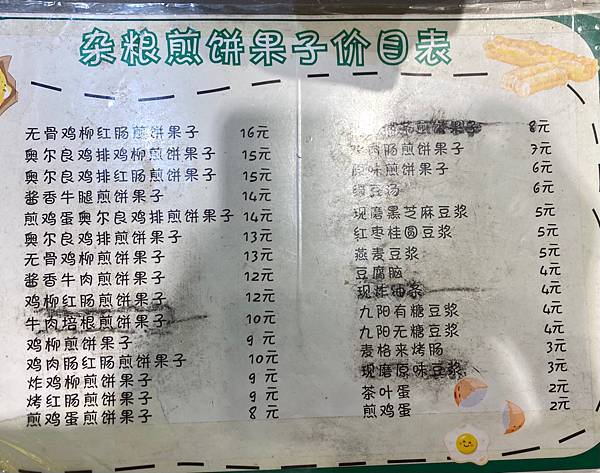 杂粮煎饼果子价目表
无骨鸡柳红肠煎饼果子 16元
奥尔良鸡排鸡柳煎饼果子 15元
奥尔良鸡排红肠煎饼果子 15元
酱香牛腿煎饼果子 14元
煎鸡蛋奥尔良鸡排煎饼果子 14元
奥尔良鸡排煎饼果子 13元
无骨鸡柳煎饼果子 13元
酱香牛肉煎饼果子 12元
鸡柳红肠煎饼果子 12元
牛肉培根煎饼果子 10元
鸡柳煎饼果子 9元
鸡肉肠红肠煎饼果子 10元
炸鸡柳煎饼果子 9元
烤红肠煎饼果子 9元
煎鸡蛋煎饼果子 8元
煎饼果子 8元
肉肠煎饼果子 7元
原味煎饼果子 6元
绿豆汤 6元
现磨黑芝麻豆浆 5元
红枣桂圆豆浆 5元
燕麦豆浆 5元
豆腐脑 4元
现炸油条 4元
九阳有糖豆浆 4元
九阳无糖豆浆 4元
麦格来烤肠 3元
现磨原味豆浆 3元
茶叶蛋 2元
煎鸡蛋 2元